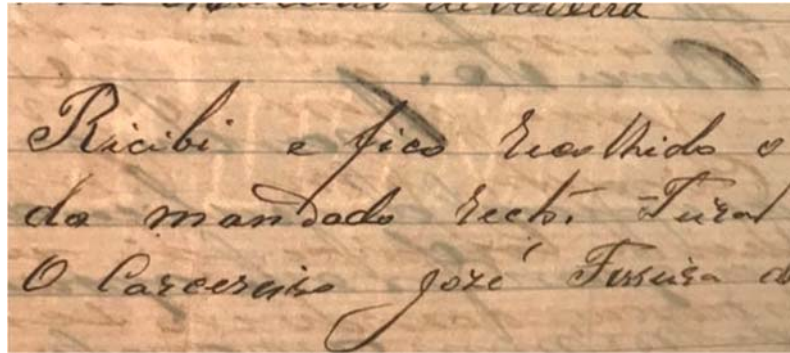 de Oliveira
Ricibi e fico recolhido o
do mandado rectº.
O Carcereiro José Ferreira d